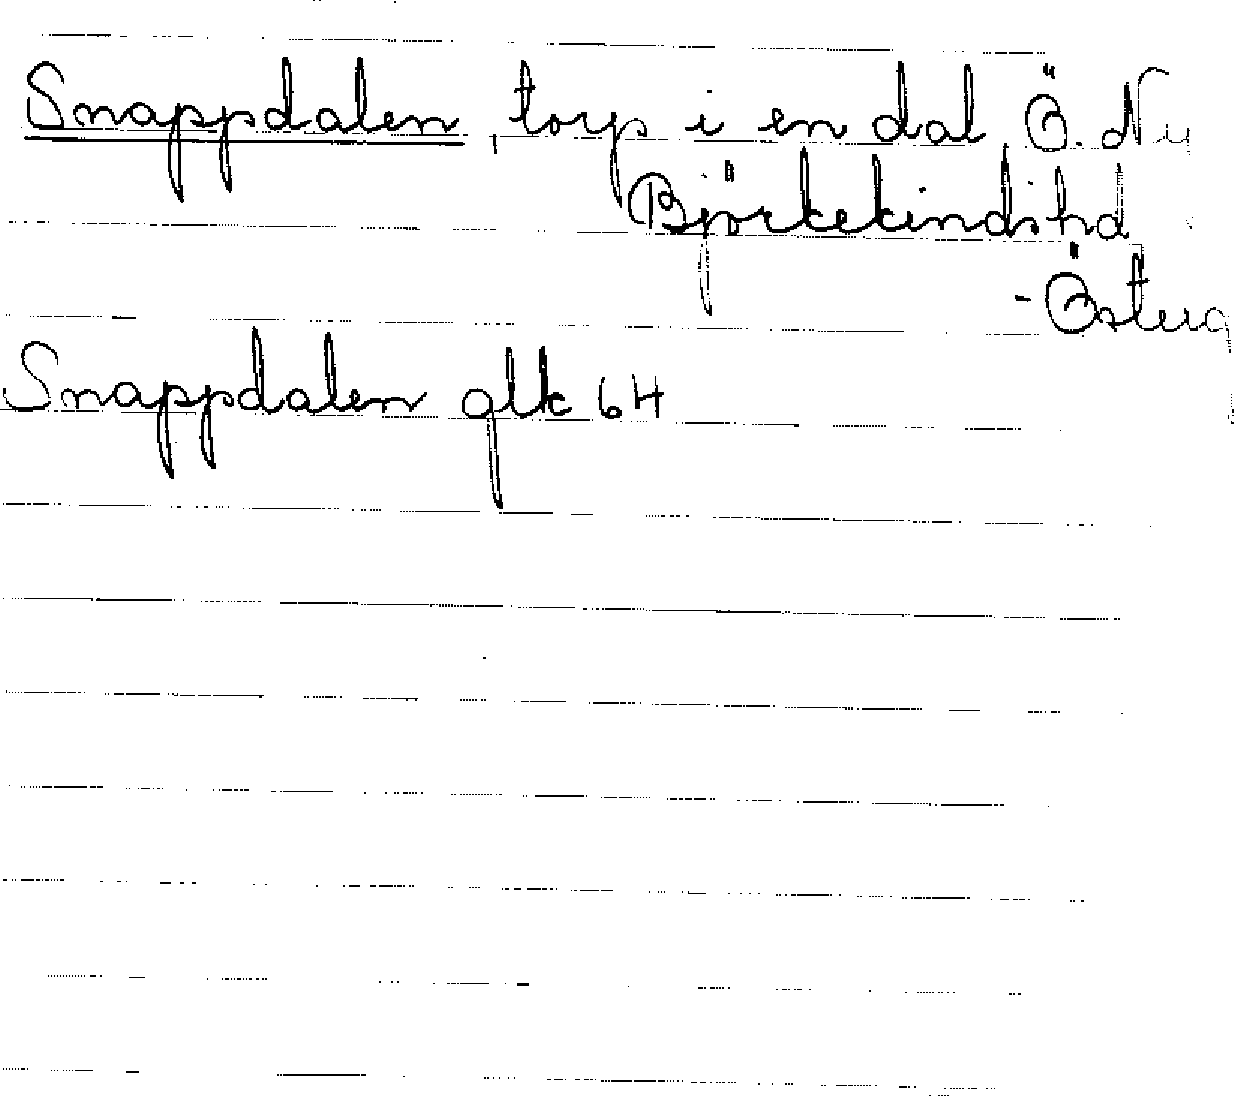 Snappdalen, torp i en dal Ö. Ny
Björkekinds hd
- Österg
Snappdalen glk 64